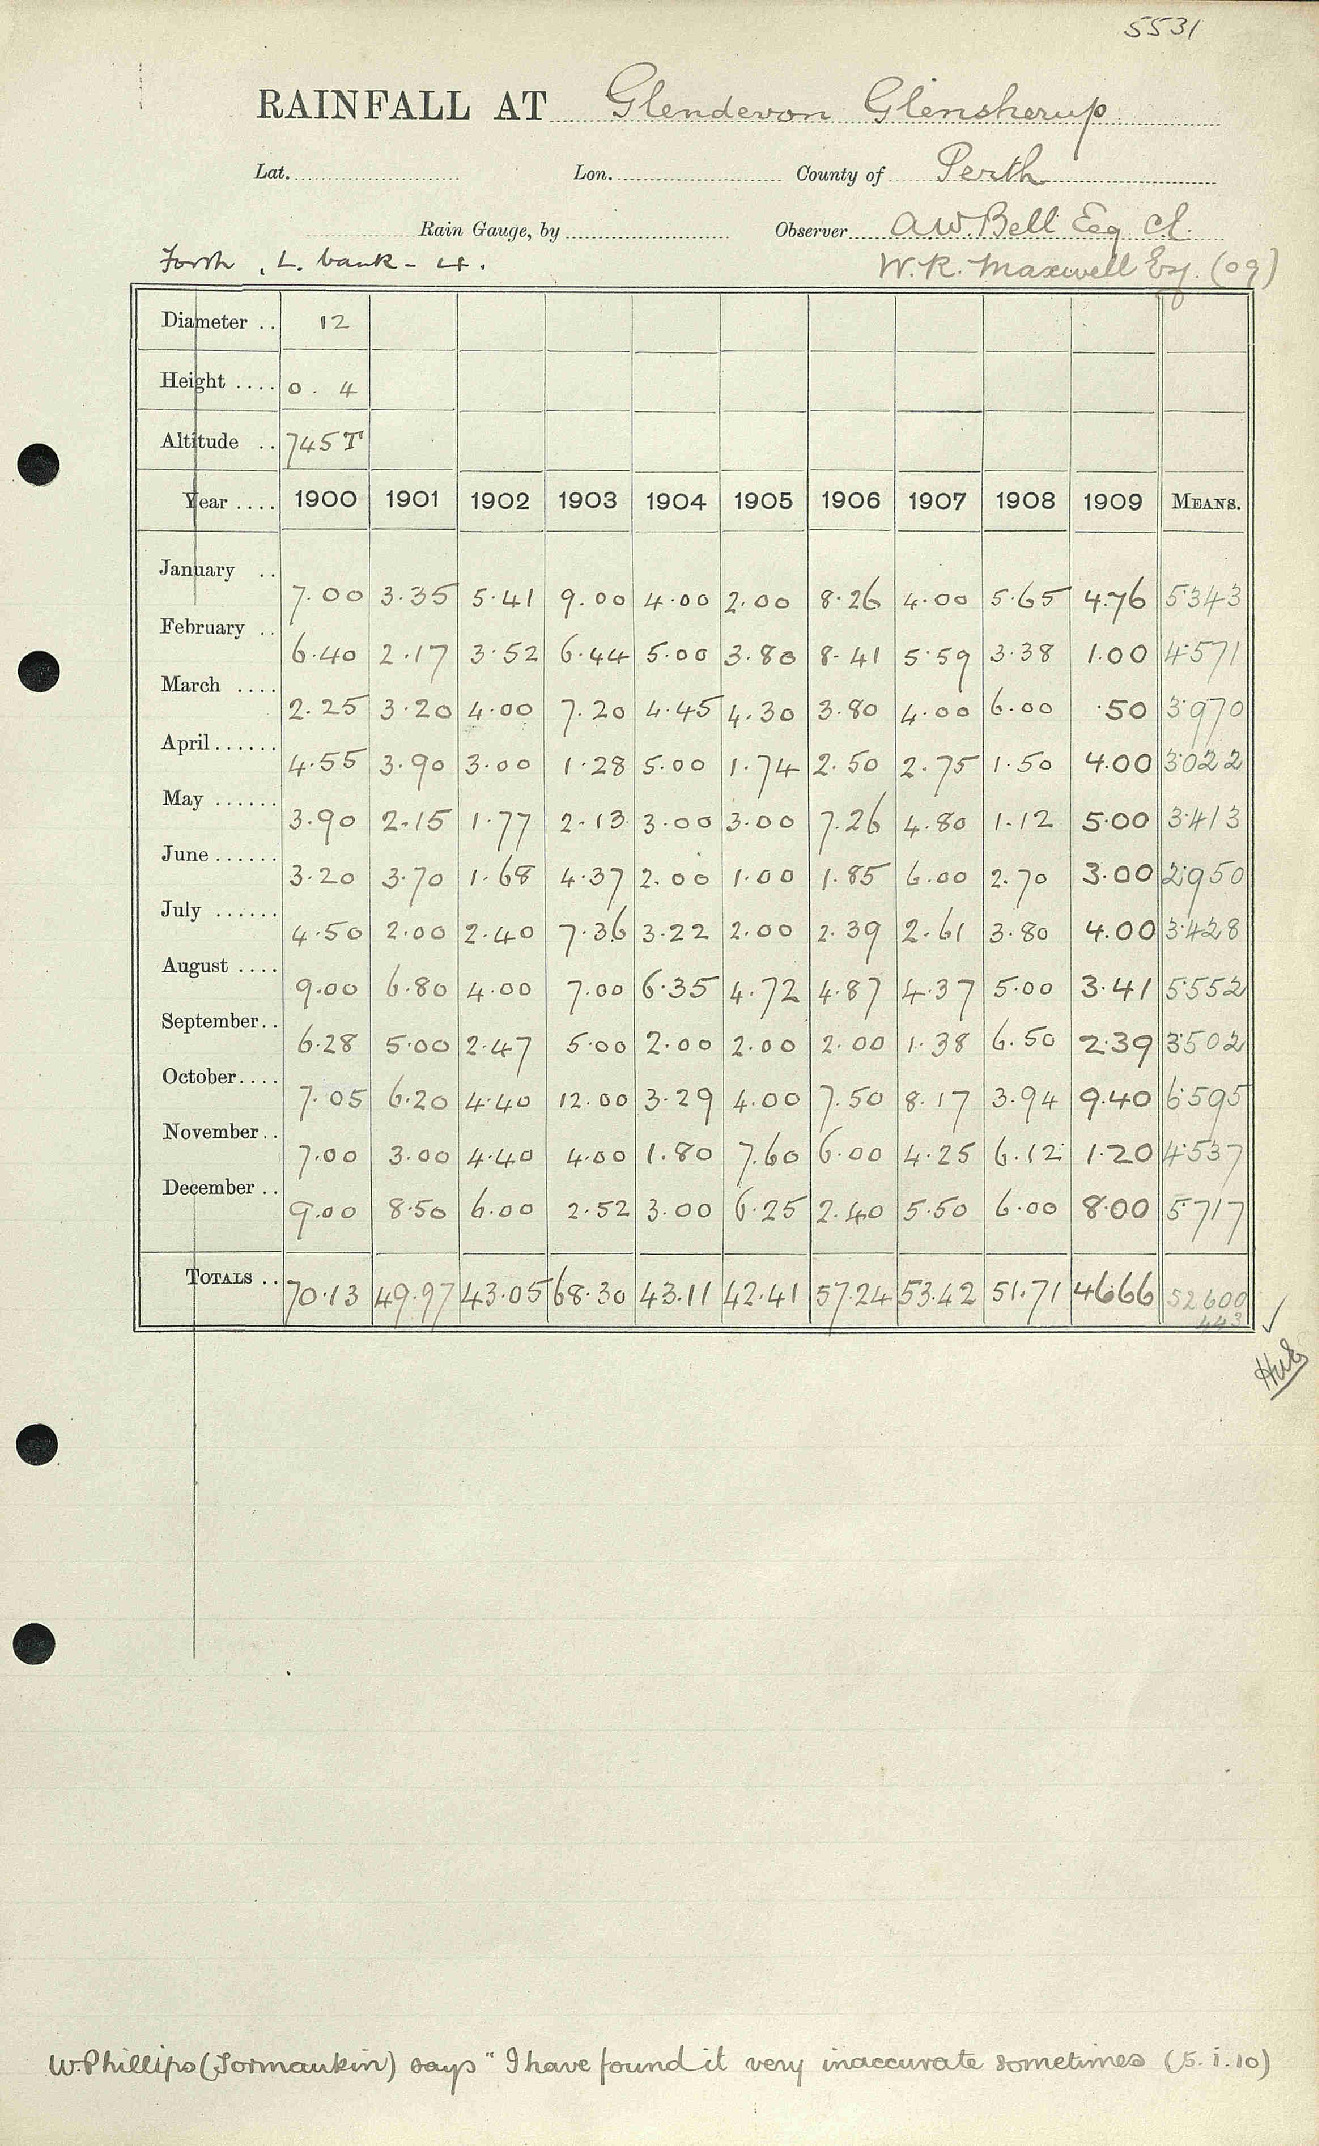 5531
RAINFALL AT Glendevon Glensherup
Lat. Lon. County of Perth
Rain Gauge, by Observer A.W. Bell Esq Cl.
Forth, L. bank - 4. W.R. Maxwell Esq. (09)
Diameter .. 12
Height .... 0. 4
Altitude .. 745 T
Year .... 1900 1901 1902 1903 1904 1905 1906 1907 1908 1909 MEANS.
January .. 7.00 3.35 5.41 9.00 4.00 2.00 8.26 4.00 5.65 4.76 5.343
February .. 6.40 2.17 3.52 6.44 5.00 3.80 8.41 5.59 3.38 1.00 4.571
March .... 2.25 3.20 4.00 7.20 4.45 4.30 3.80 4.00 6.00 .50 3.970
April...... 4.55 3.90 3.00 1.28 5.00 1.74 2.50 2.75 1.50 4.00 3.022
May ...... 3.90 2.15 1.77 2.13 3.00 3.00 7.26 4.80 1.12 5.00 3.413
June...... 3.20 3.70 1.68 4.37 2.00 1.00 1.85 6.00 2.70 3.00 2.950
July ...... 4.50 2.00 2.40 7.36 3.22 2.00 2.39 2.61 3.80 4.00 3.428
August .... 9.00 6.80 4.00 7.00 6.35 4.72 4.87 4.37 5.00 3.41 5.552
September.. 6.28 5.00 2.47 5.00 2.00 2.00 2.00 1.38 6.50 2.39 3.502
October.... 7.05 6.20 4.40 12.00 3.29 4.00 7.50 8.17 3.94 9.40 6.595
November.. 7.00 3.00 4.40 4.00 1.80 7.60 6.00 4.25 6.12 1.20 4.537
December .. 9.00 8.50 6.00 2.52 3.00 6.25 2.40 5.50 6.00 8.00 5.717
TOTALS .. 70.13 49.97 43.05 68.30 43.11 42.41 57.24 53.42 51.71 46.66 52.600
443
W. Phillips (Tormaukin) says "I have found it very inaccurate sometimes (5.1.10)